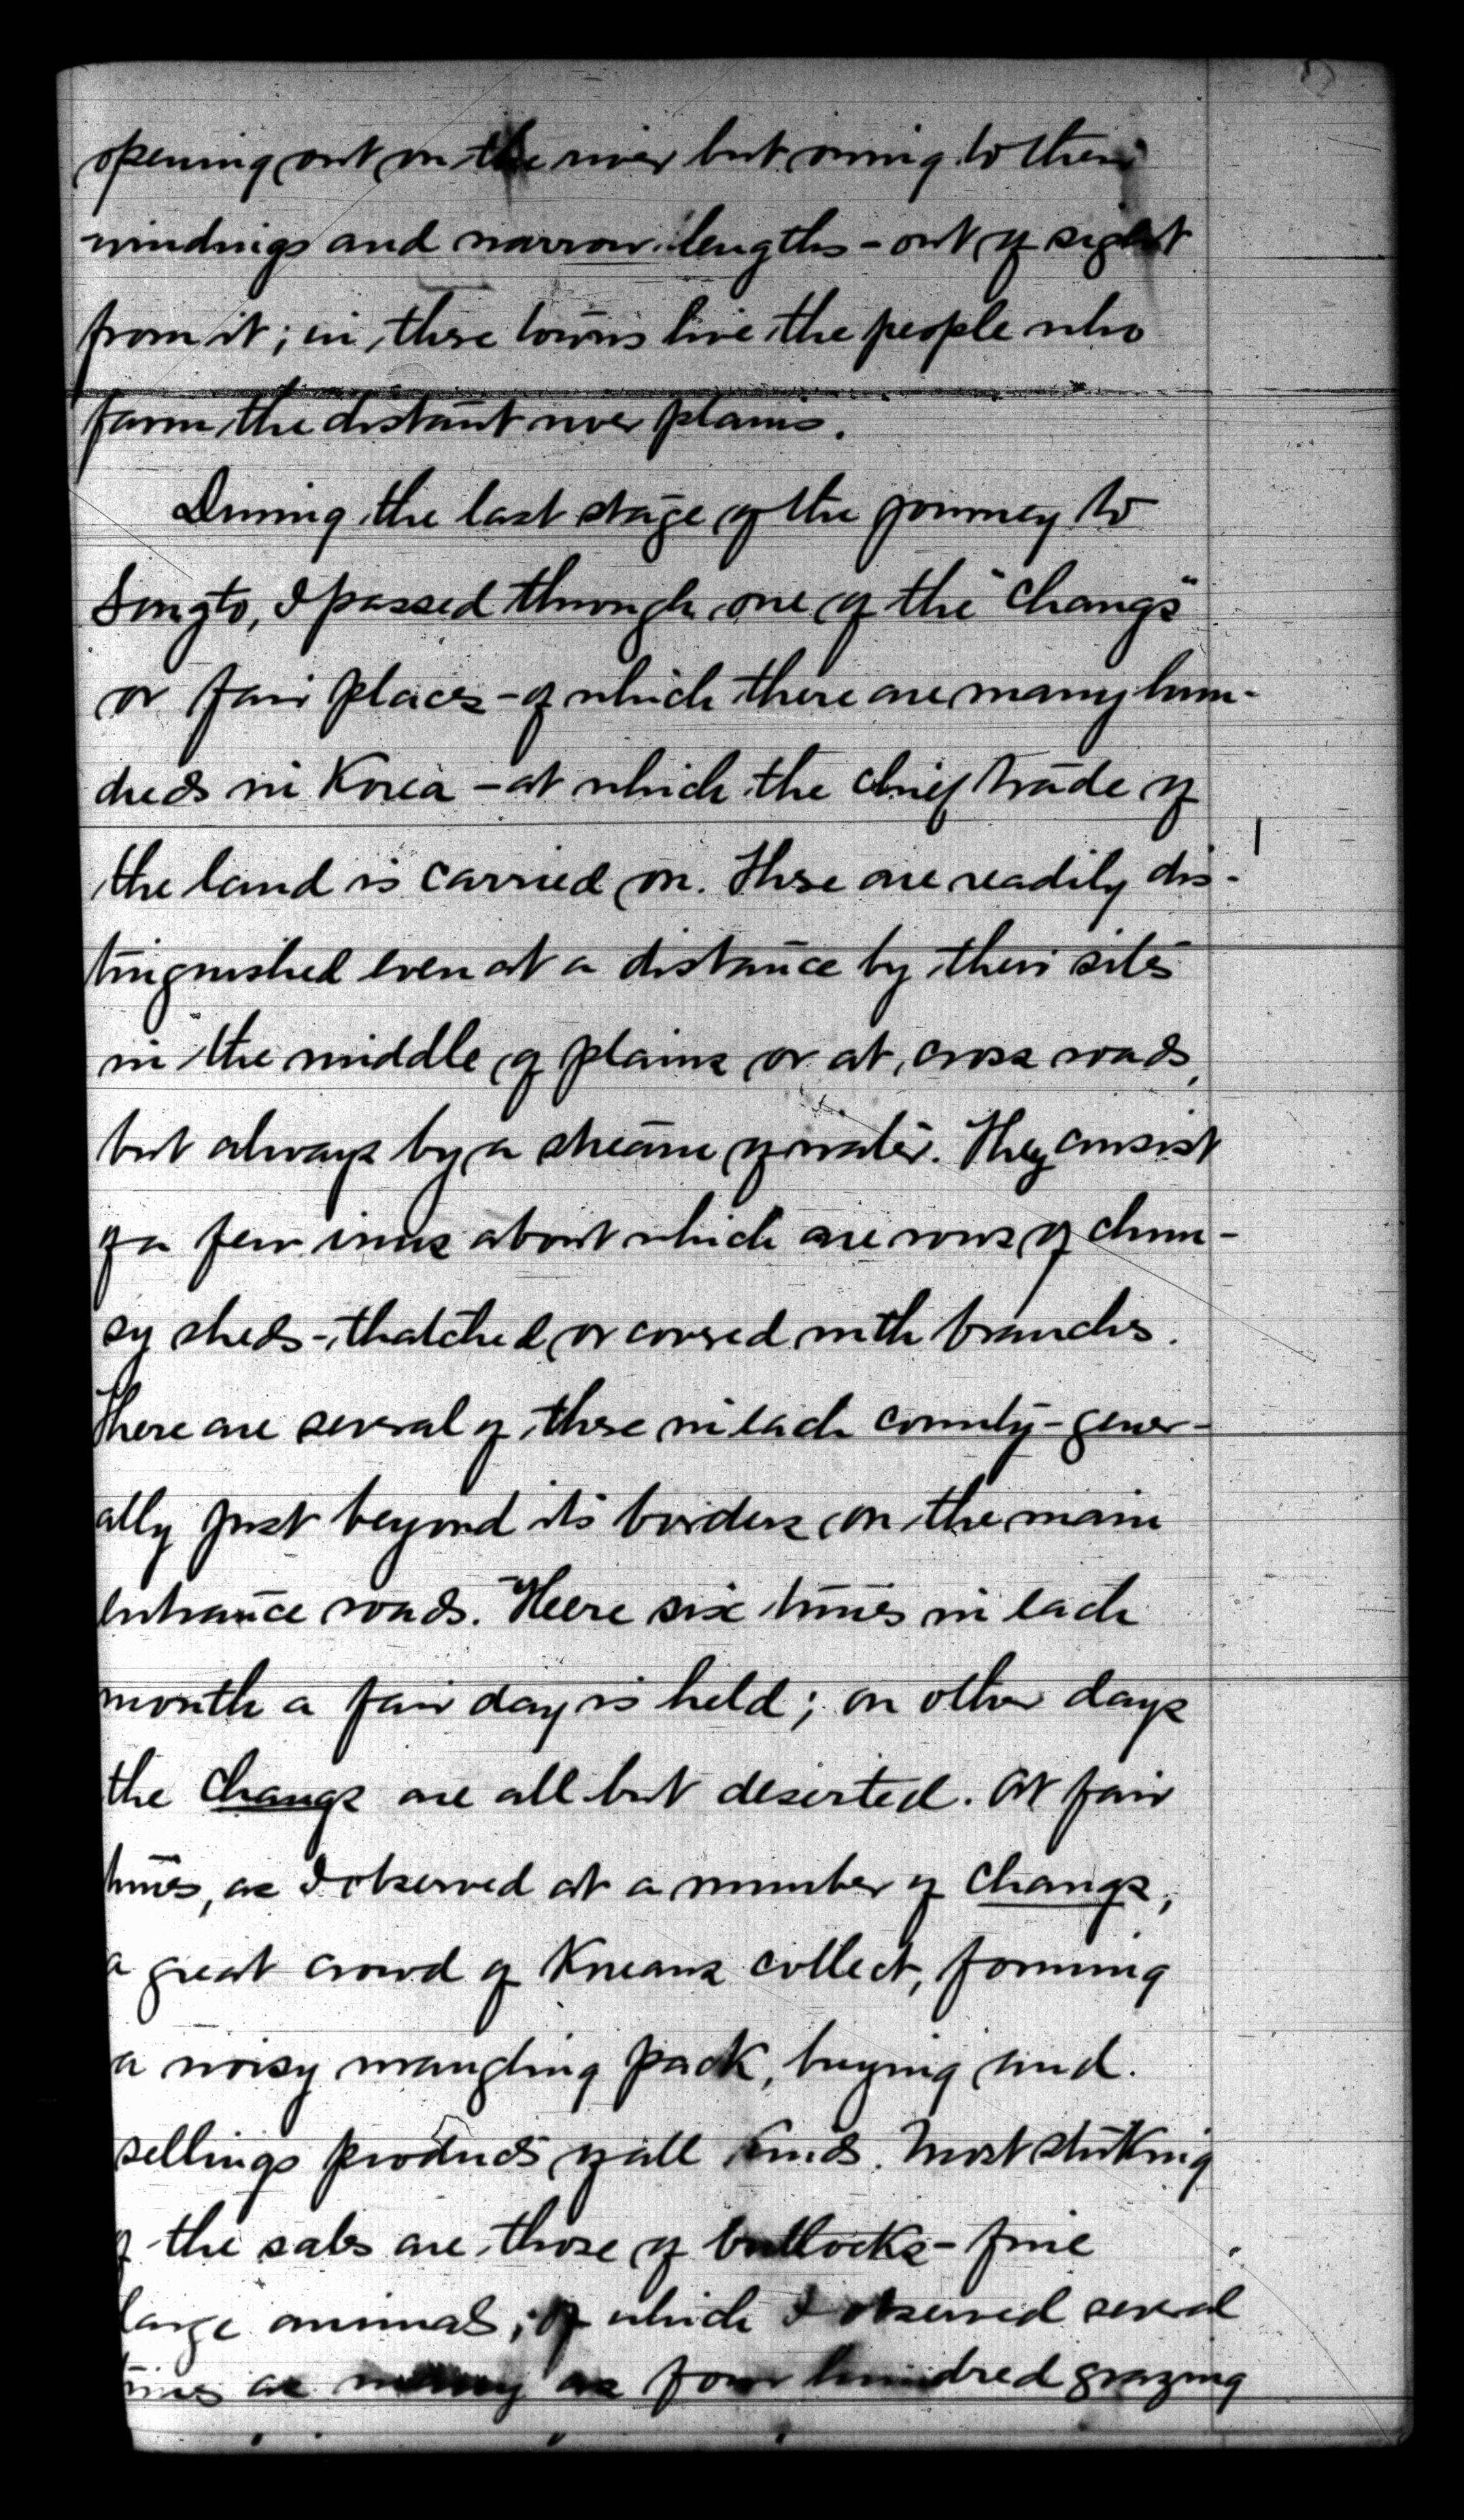 opening out on the river but owing to their
windings and narrow lengths - out of sight
from it; in these towns live the people who
farm the distant river plains.
During the last stage of the journey to
Songto, I passed through one of the "Changs"
or fair places - of which there are many hun-
dreds in Korea - at which the chief trade of
the land is carried on. These are readily dis-
tinguished even at a distance by their sites
in the middle of plains or at cross roads,
but always by a stream of water. They consist
of a few inns about which are rows of clum-
sy sheds - thatched or covered with branches.
There are several of these in each county - gener-
ally just beyond its borders on the main
entrance roads. Here six times in each
month a fair day is held; on other days
the Changs are all but deserted. At fair
times, as I observed at a number of Changs,
a great crowd of Koreans collect, forming
a noisy wrangling pack, buying and
sellings products of all kinds. Most striking
of the sales are those of bullocks - fine
large animals; of which I observed several
times as many as four hundred grazing